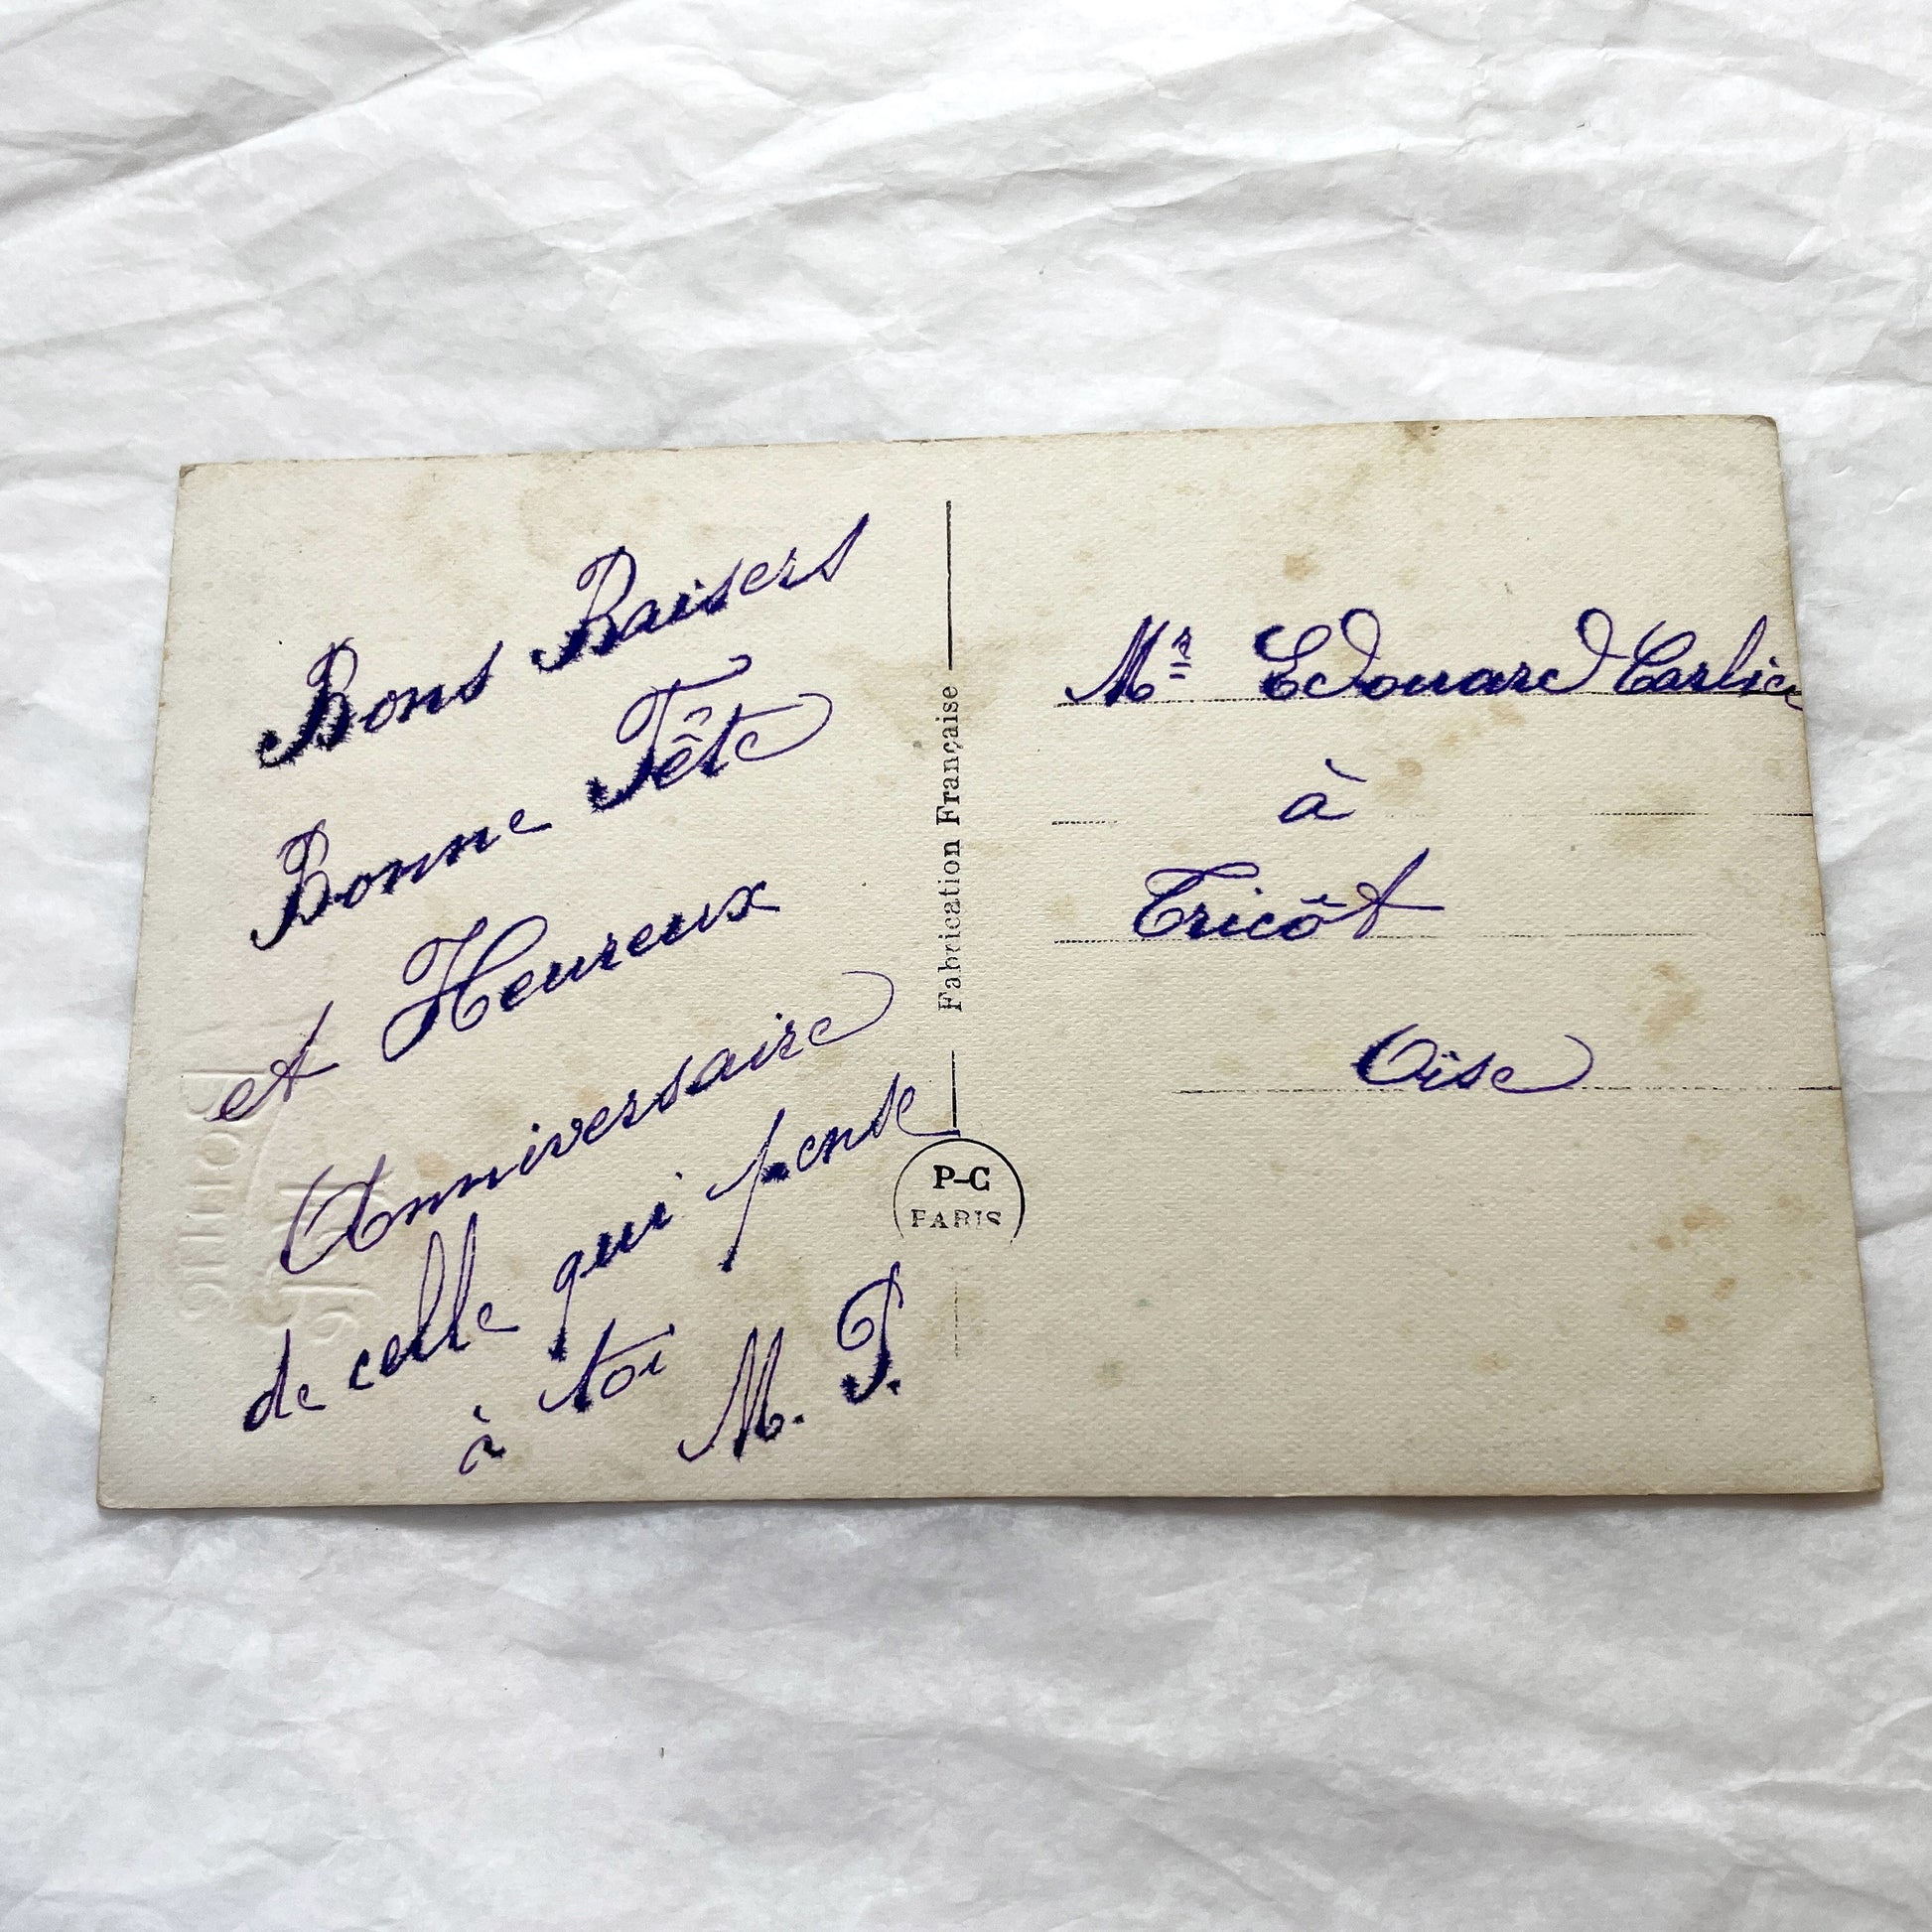 Bons Baisers
Bonne Fête
et Heureux
Anniversaire
de celle qui pense
à toi M. P.
Fabrication Française
P-C
PARIS
Mr Edouard Carlier
à
Tricôt
Oise
Bonne
Fête